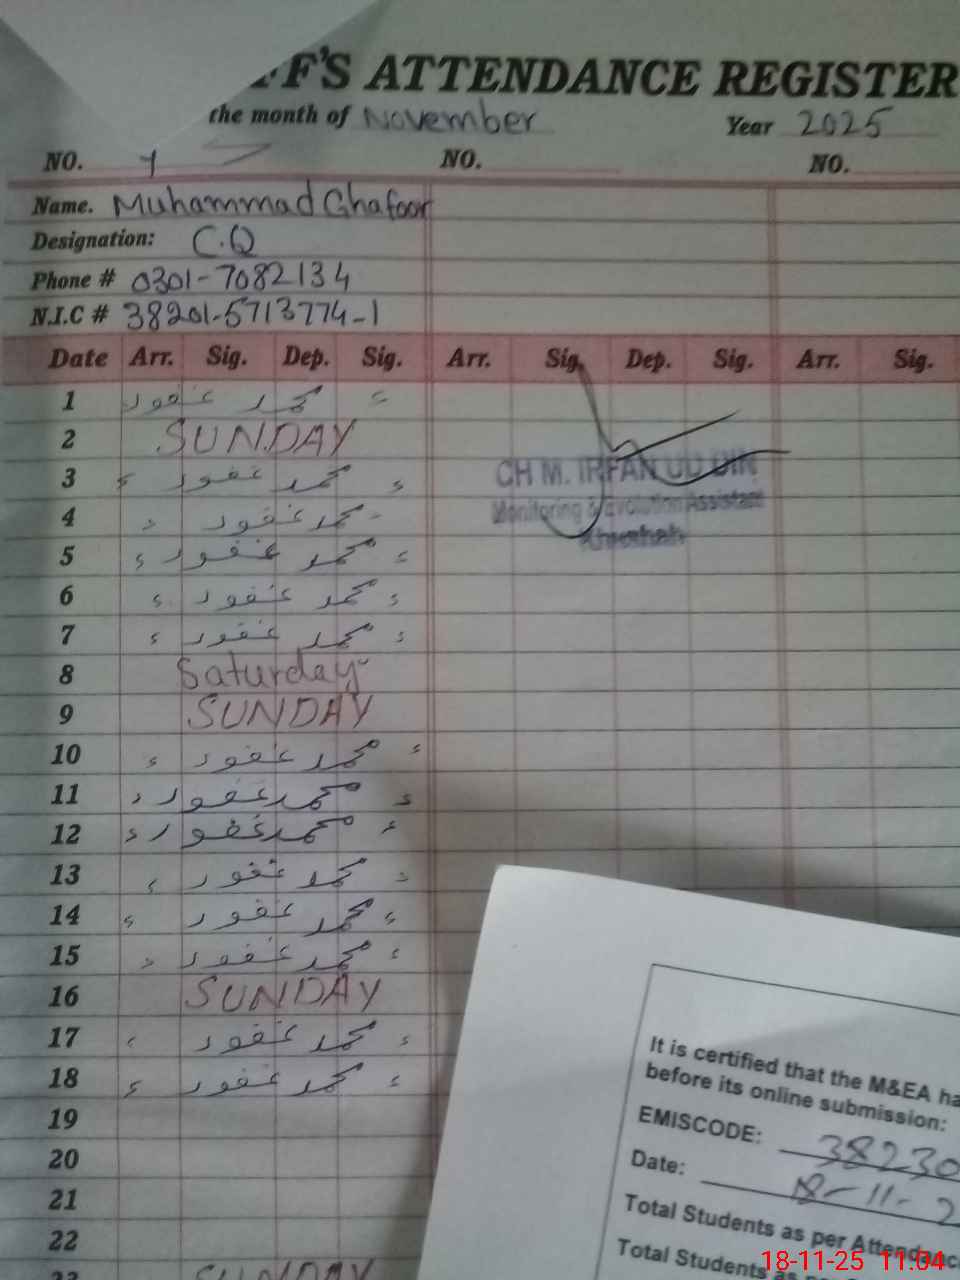 FF'S ATTENDANCE REGISTER
the month of November Year 2025
NO. 1 NO. NO.
Name. Muhammad Ghafoor
Designation: C.Q
Phone # 0301-7082134
N.I.C # 38201-5713774-1
Date Arr. Sig. Dep. Sig. Arr. Sig. Dep. Sig. Arr. Sig.
1 محمد غفور
2 SUNDAY
3 محمد غفور
4 محمد غفور
5 محمد غفور
6 محمد غفور
7 محمد غفور
8 Saturday
9 SUNDAY
10 محمد غفور
11 محمد غفور
12 محمد غفور
13 محمد غفور
14 محمد غفور
15 محمد غفور
16 SUNDAY
17 محمد غفور
18 محمد غفور
19
20
21
22
23 SUNDAY
CH M. IRFAN UD DIN
Monitoring & Evolution Assistant
It is certified that the M&EA ha
before its online submission:
EMISCODE: 38230
Date: 18-11-2
Total Students as per Attendanc
Total Students as
18-11-25 11:04